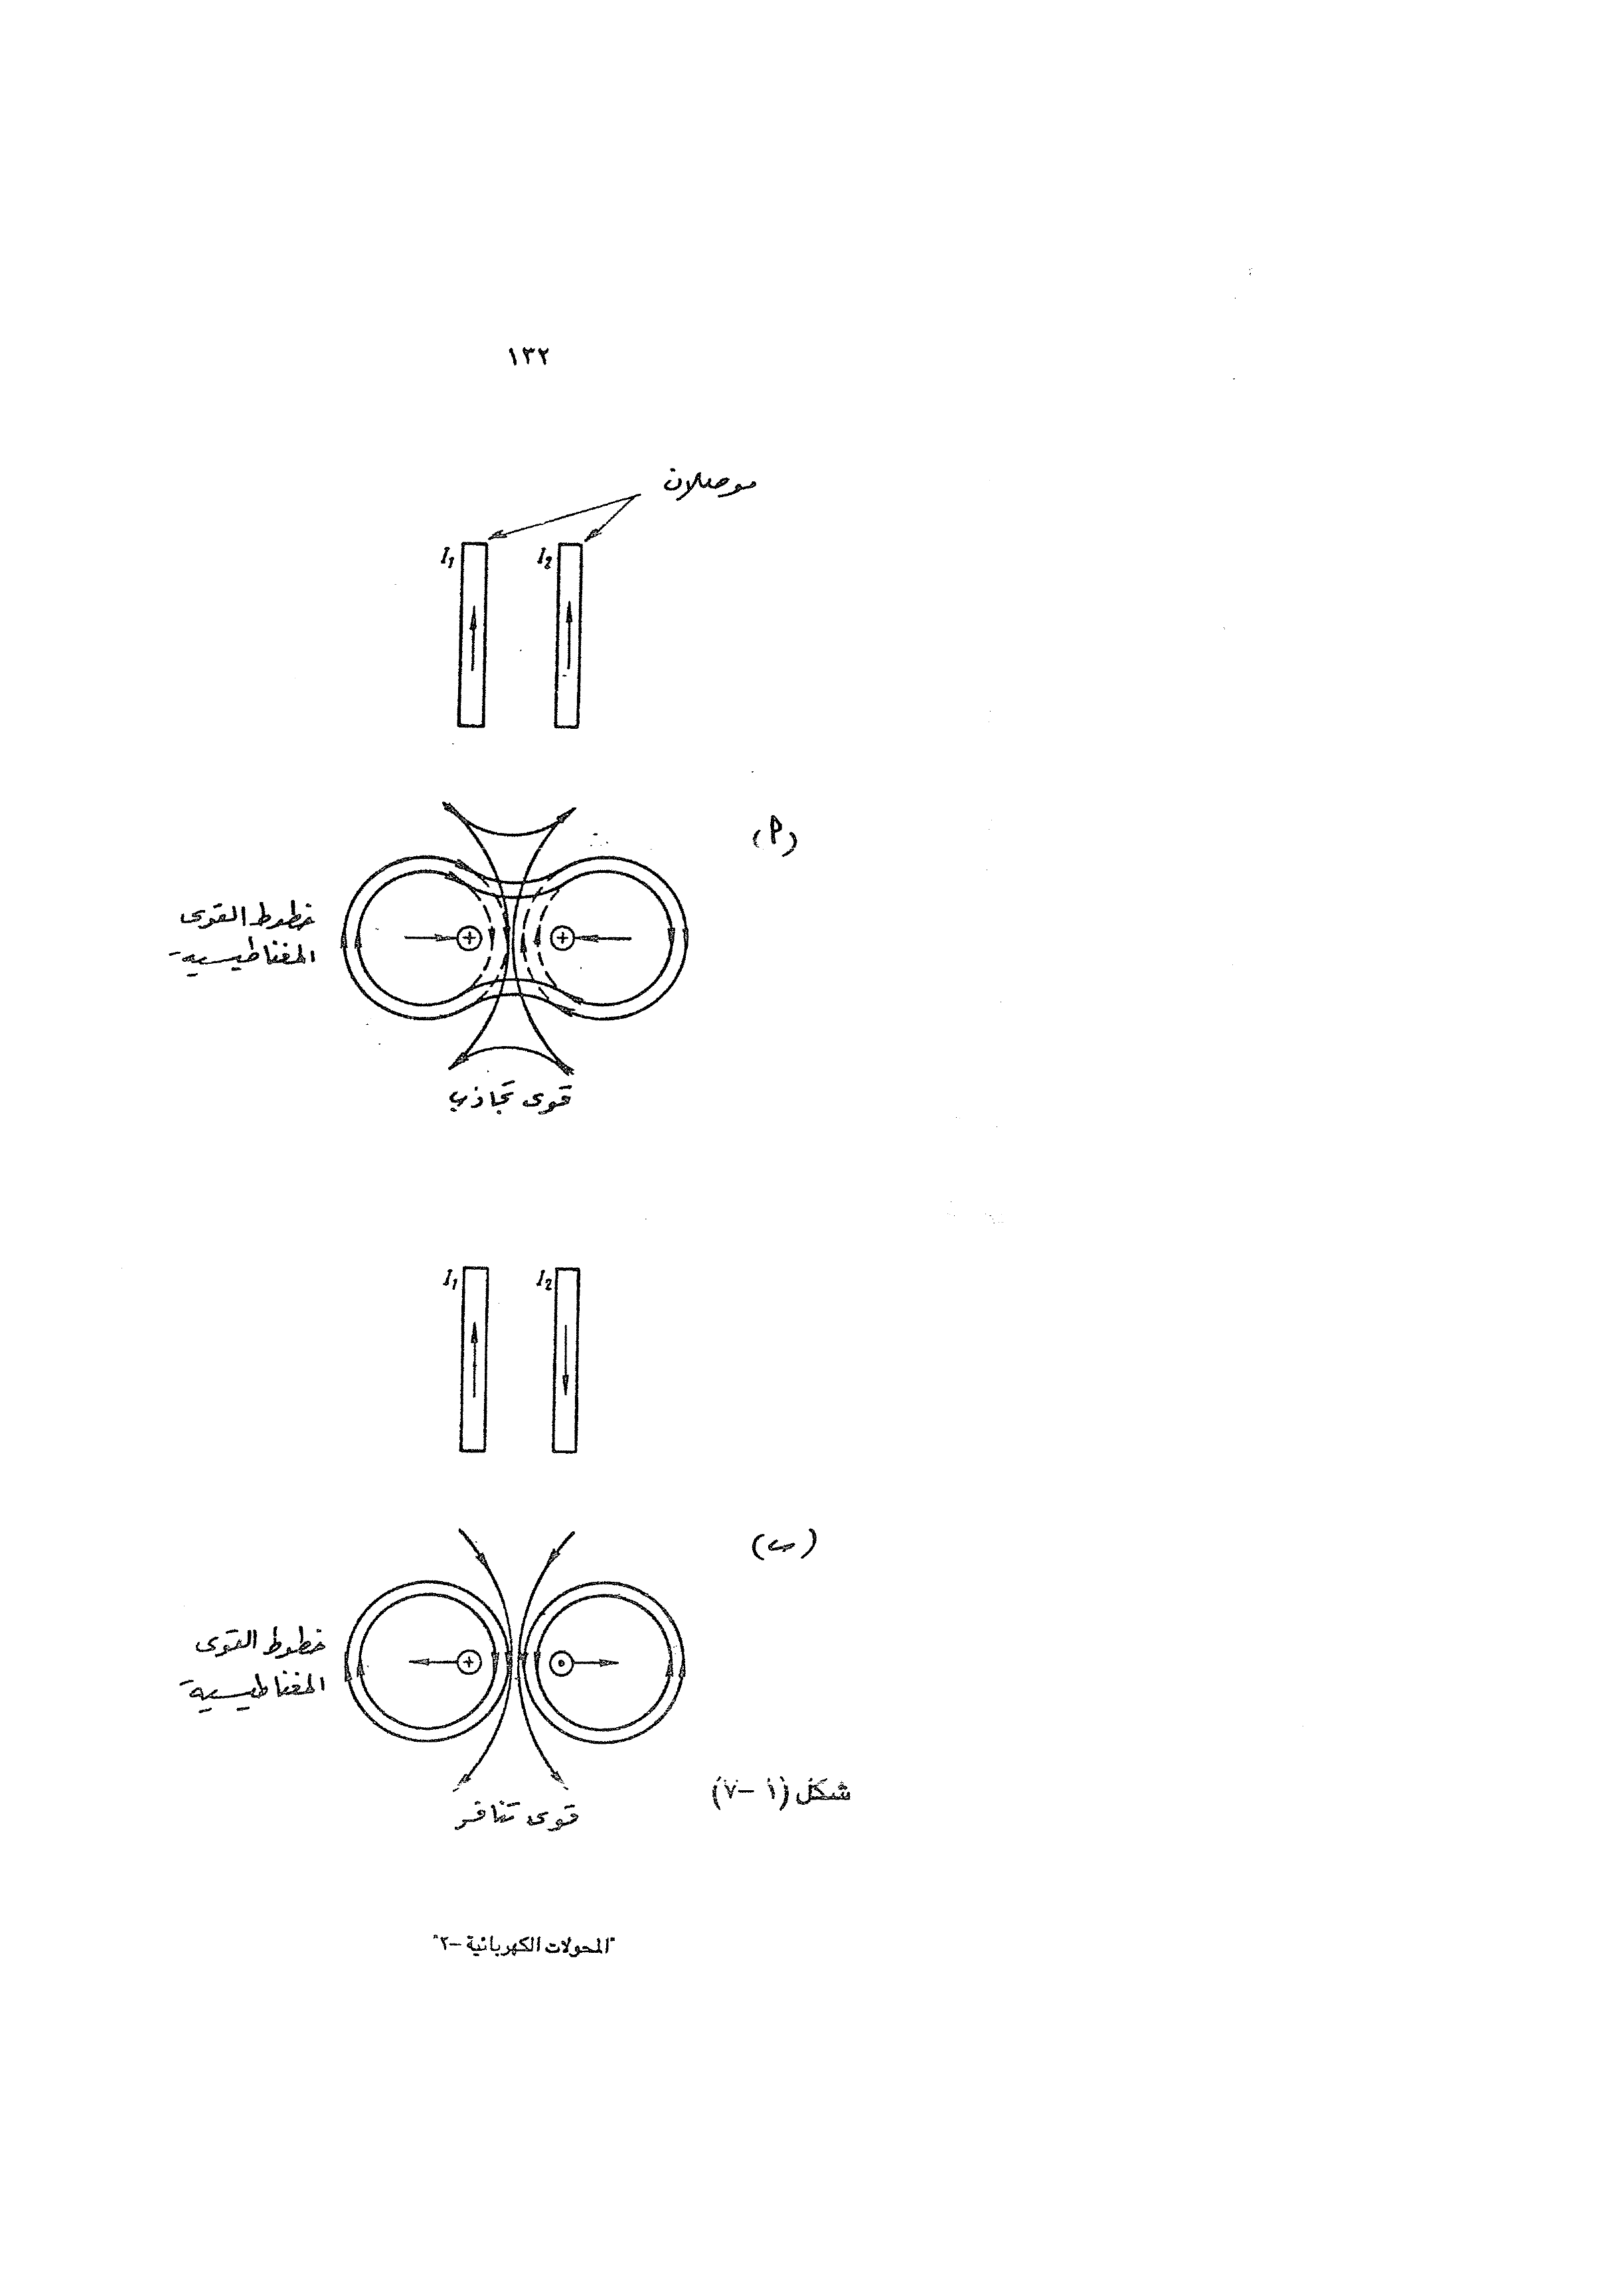 ١٣٢
موصلان
I₁ I₂
(أ)
خطوط القوى
المغناطيسية
قوى تجاذب
I₁ I₂
(ب)
خطوط القوى
المغناطيسية
قوى تنافر
شكل (١ -٧)
"المحولات الكهربائية -٢"